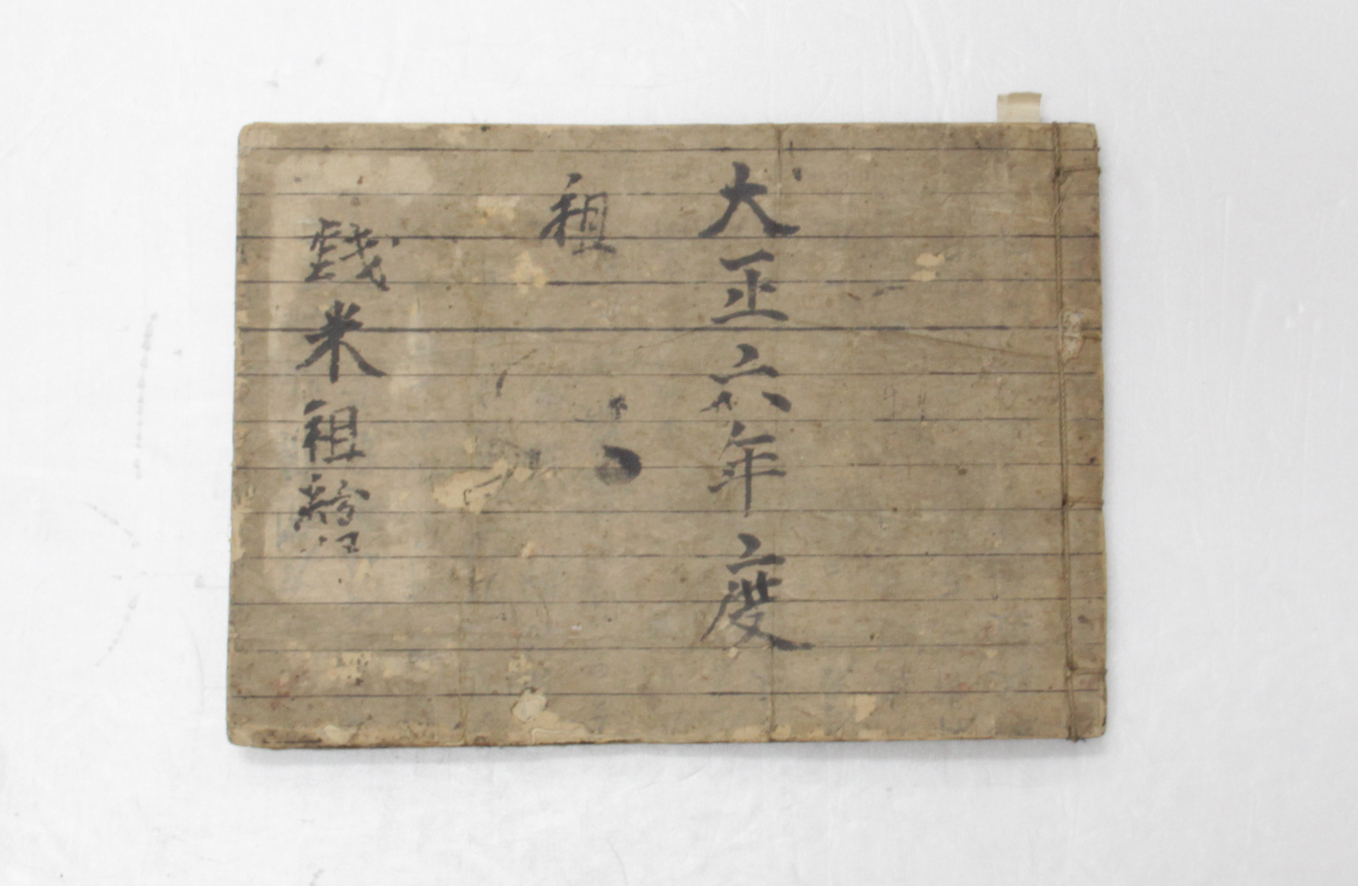 大正六年度
租
錢米租